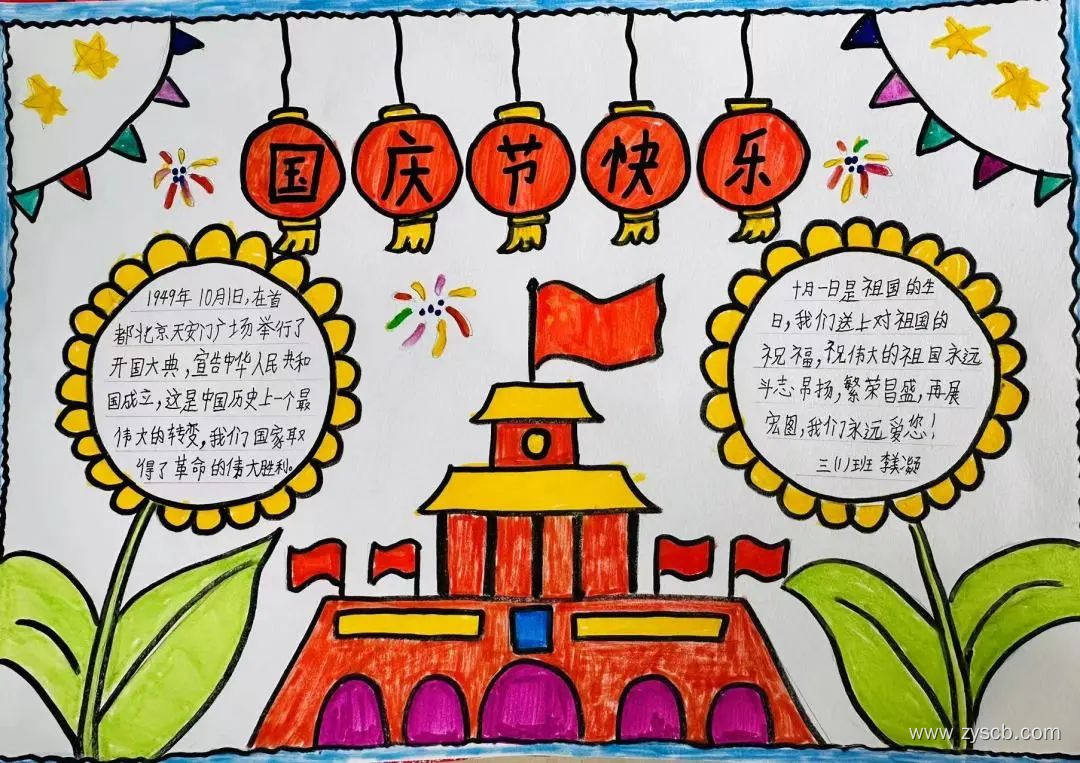 国庆节快乐
1949年10月1日,在首
都北京天安门广场举行了
开国大典,宣告中华人民共和
国成立,这是中国历史上一个最
伟大的转变,我们国家取
得了革命的伟大胜利。
十月一日是祖国的生
日,我们送上对祖国的
祝福,祝伟大的祖国永远
斗志昂扬,繁荣昌盛,再展
宏图,我们永远爱您!
三(1)班 李美灏
www.zyscb.com